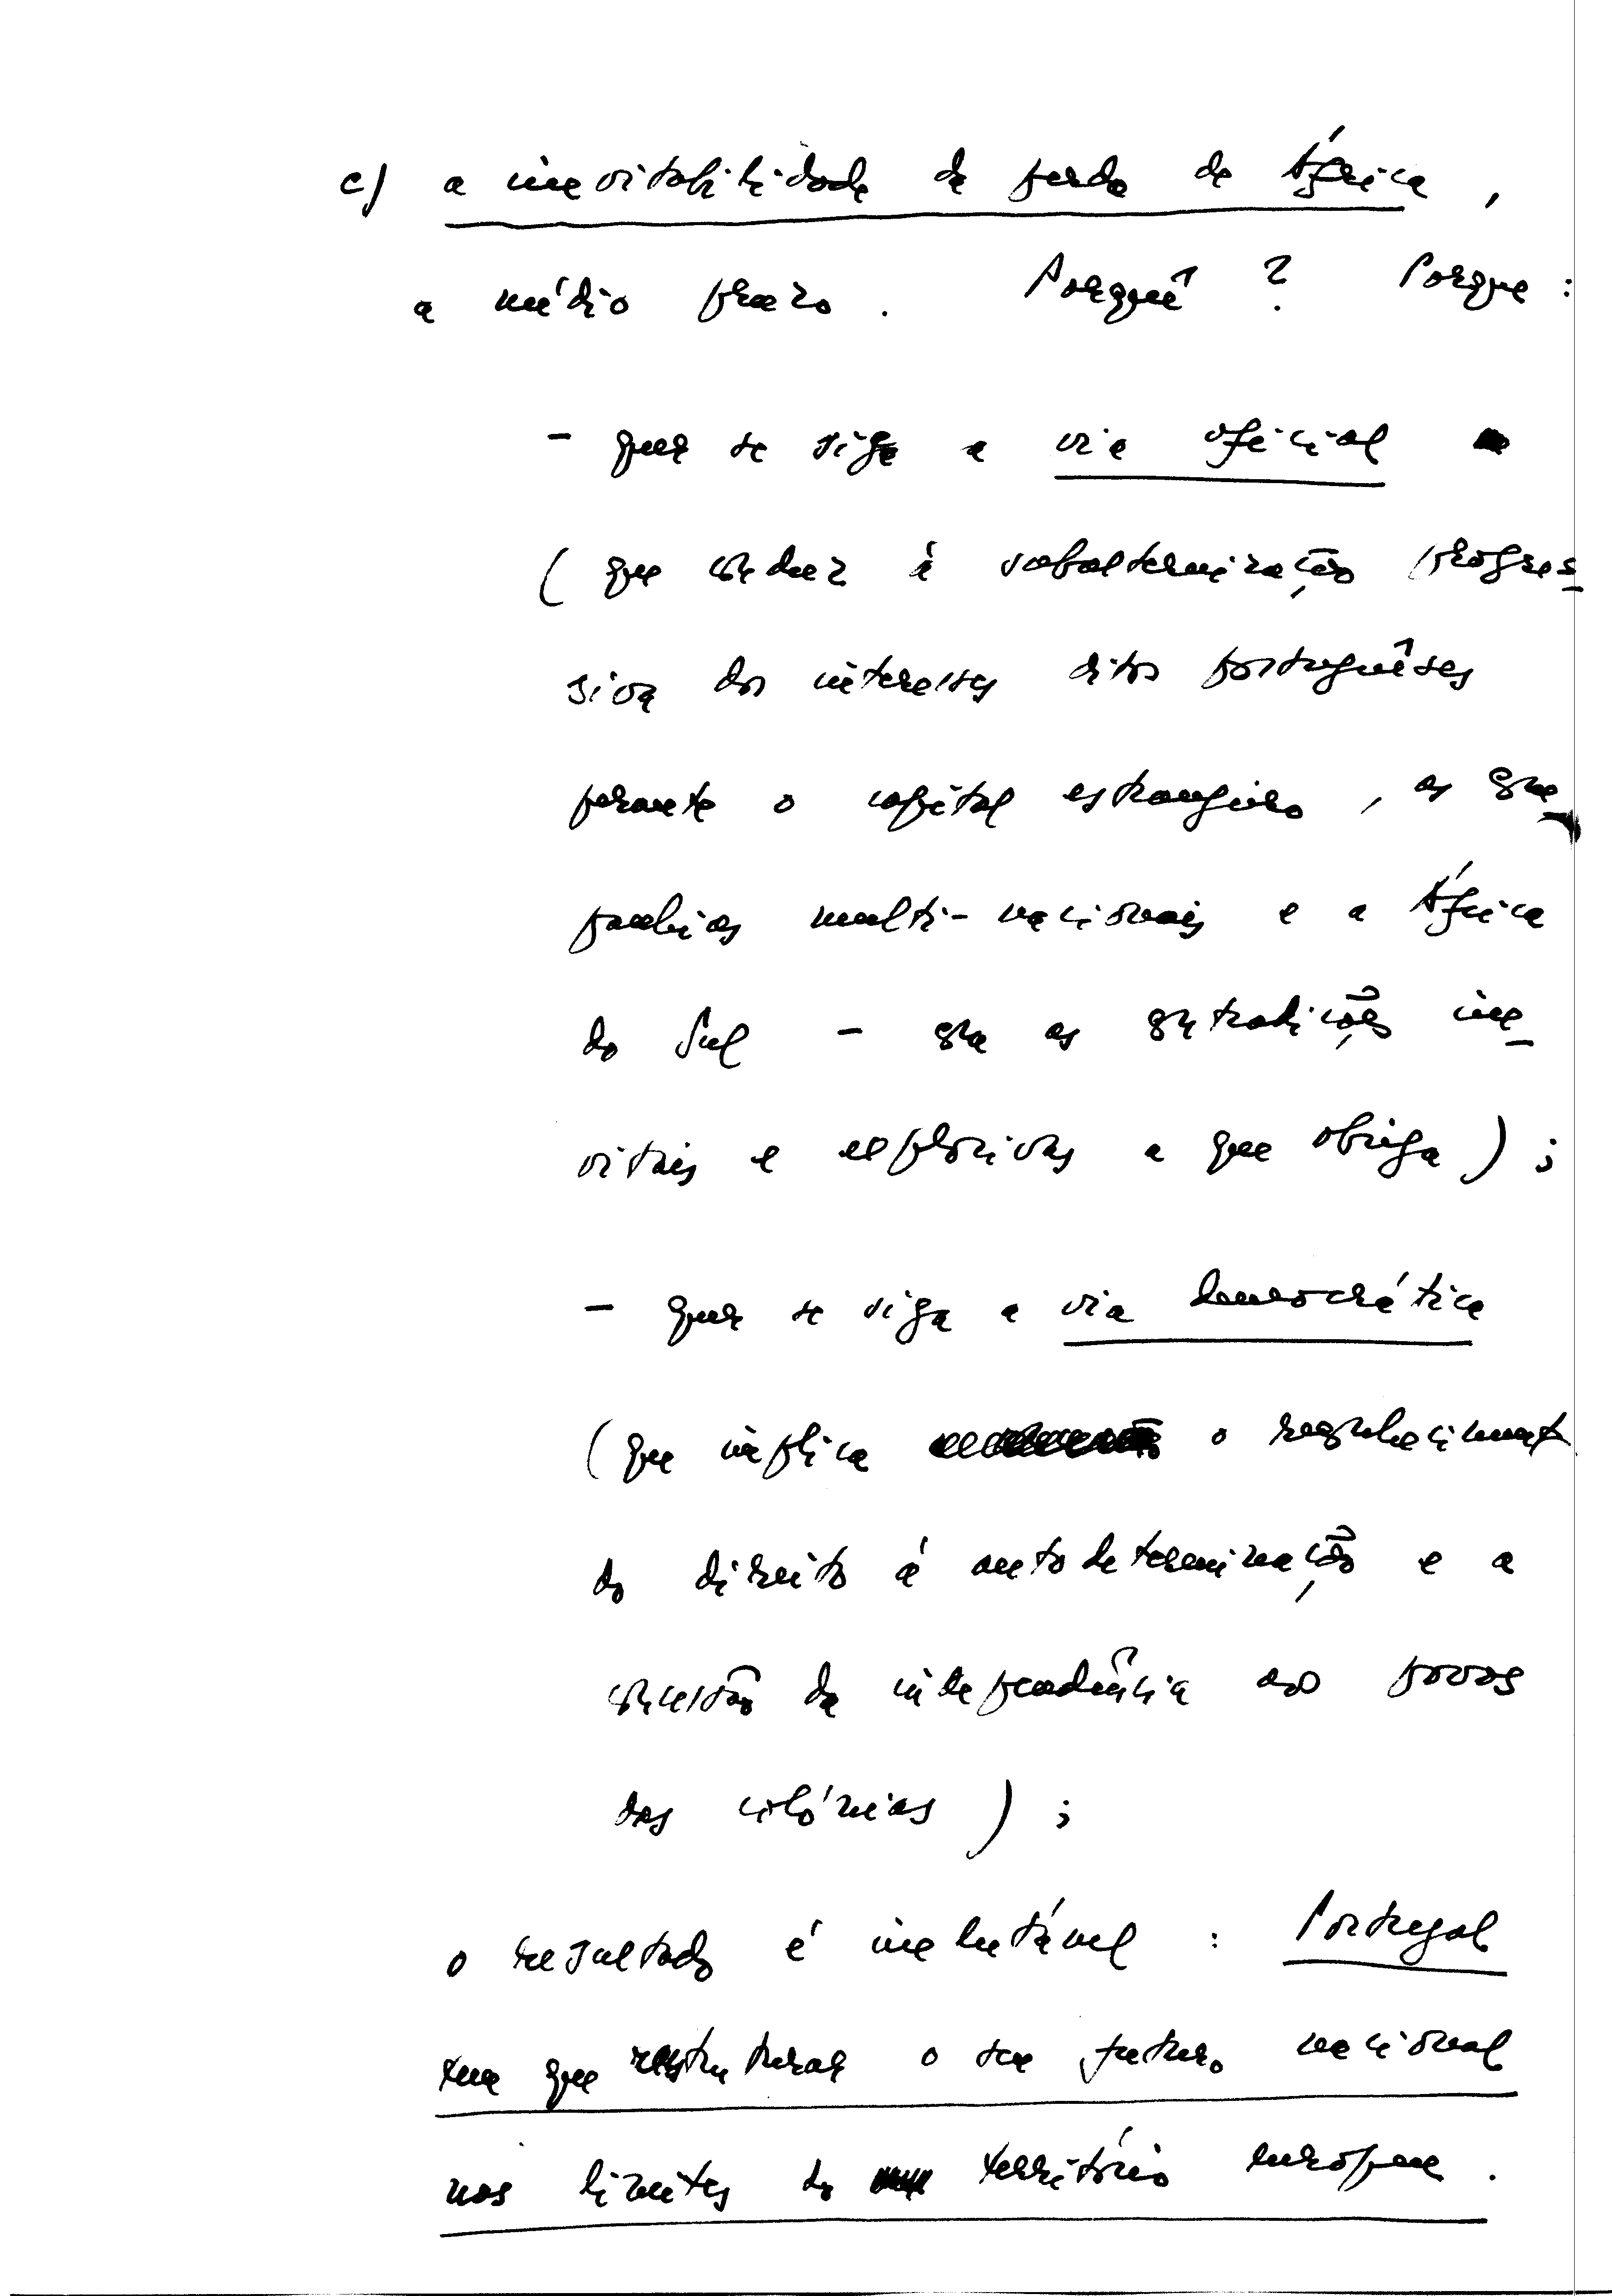 c) a inevitabilidade da perda de África,
a médio prazo. Porquê? Porque:
- quer se siga a via oficial
(que conduz à subalternização progres-
siva dos interesses ditos portuguêses
perante o capital estrangeiro, as com-
panhias multi-nacionais e a África
do Sul - com as contradições ine-
vitáveis e explosivas a que obriga);
- quer se siga a via democrática
(que implica o reconhecimento
do direito à autodeterminação e a
concessão da independência aos povos
das colónias);
o resultado é inelutável: Portugal
tem que restruturar o seu futuro nacional
nos limites do território europeu.